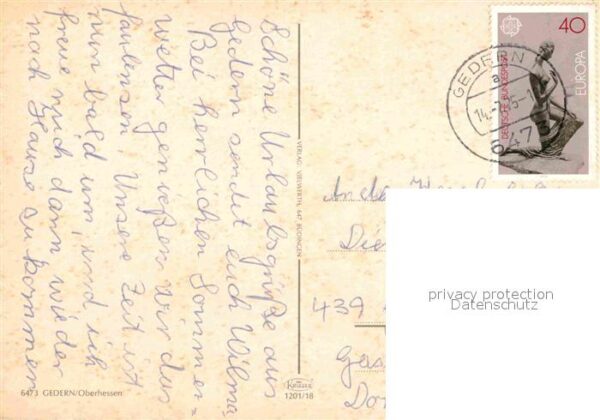 Schöne Urlaubsgrüße aus
Gedern sendet euch Wilma
Bei herrlichen Sommer=
wetter genießen wir das
faulensen, Unsere Zeit ist
nun bald um, und ich
freue mich dann wieder
nach Hause zu kommen
6473 GEDERN/Oberhessen
VERLAG VIEWERTH, 647 BÜDINGEN
Krüger
1201/18
40
EUROPA
DEUTSCHE BUNDESPOST
GEDERN
a
647
An
Die
439
privacy protection
Datenschutz